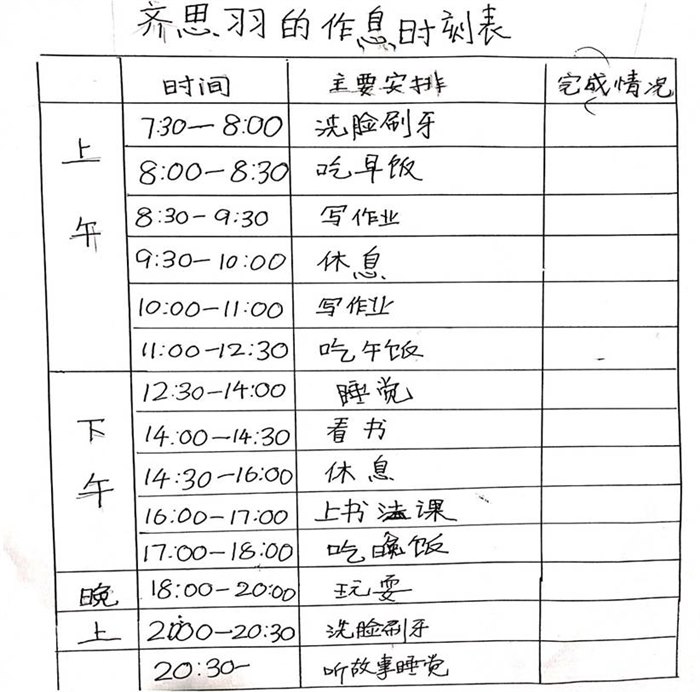 齐思羽的作息时刻表
时间 主要安排 完成情况
上午
7:30—8:00 洗脸刷牙
8:00—8:30 吃早饭
8:30—9:30 写作业
9:30—10:00 休息
10:00—11:00 写作业
11:00—12:30 吃午饭
下午
12:30—14:00 睡觉
14:00—14:30 看书
14:30—16:00 休息
16:00—17:00 上书法课
17:00—18:00 吃晚饭
晚上
18:00—20:00 玩耍
20:00—20:30 洗脸刷牙
20:30— 听故事睡觉